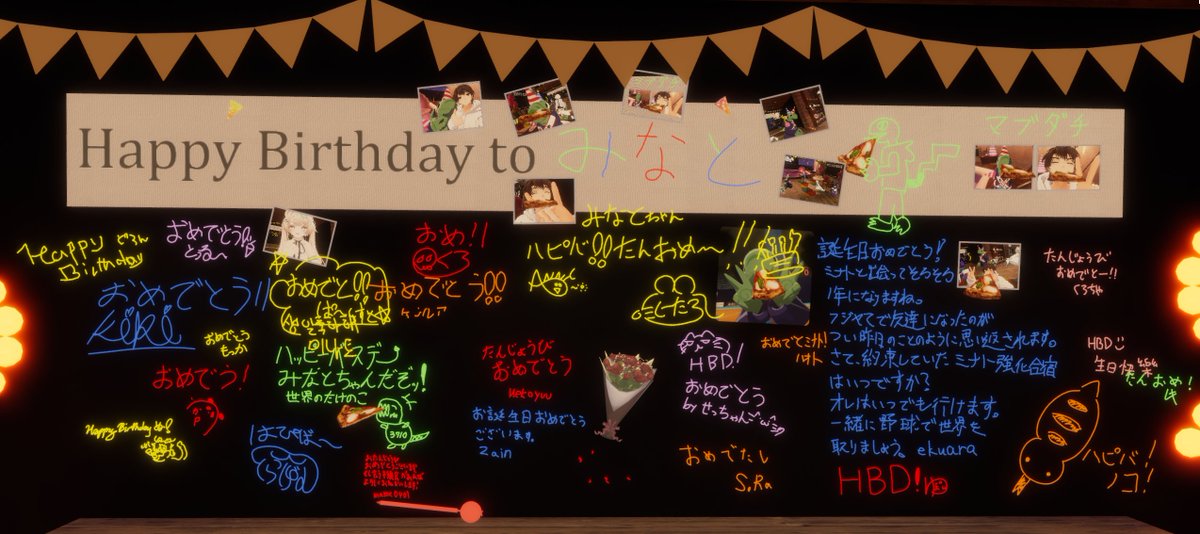 Happy Birthday to みなと
マブダチ
みなとちゃん
ハピバ!!たんおめ〜!!
Happy
Birthday
おめでとう!!
とるへ
おめでとう!!
kiki
おめでとう
もっか
おめでと!!
おめ!!
おめでとう!!
ケンルア
誕生日おめでとう!
ミナトと出会ってそろそろ
1年になりますね。
フジヤマで友達になったのが
つい昨日のことのように思い返されます。
さて、約束していたミナト強化合宿
はいつですか?
オレはいつでも行けます。
一緒に野球で世界を
取りましょう。ekuara
たんじょうび
おめでとー!!
くろちゃ
おめでう!
ハッピーバースデー
みなとちゃんだぞッ!
世界のたけのこ
3710
たんじょうび
おめでとう
Metoyuu
お誕生日おめでとう
ございます。
Zain
HBD!
おめでとう
by せっちゃん
おめでとミナト!
ハオト
HBD
生日快樂
たんおめ!
Happy Birthday
はぴば〜
おめでたし
SoRa
HBD!
ハピバ!
ノコ!